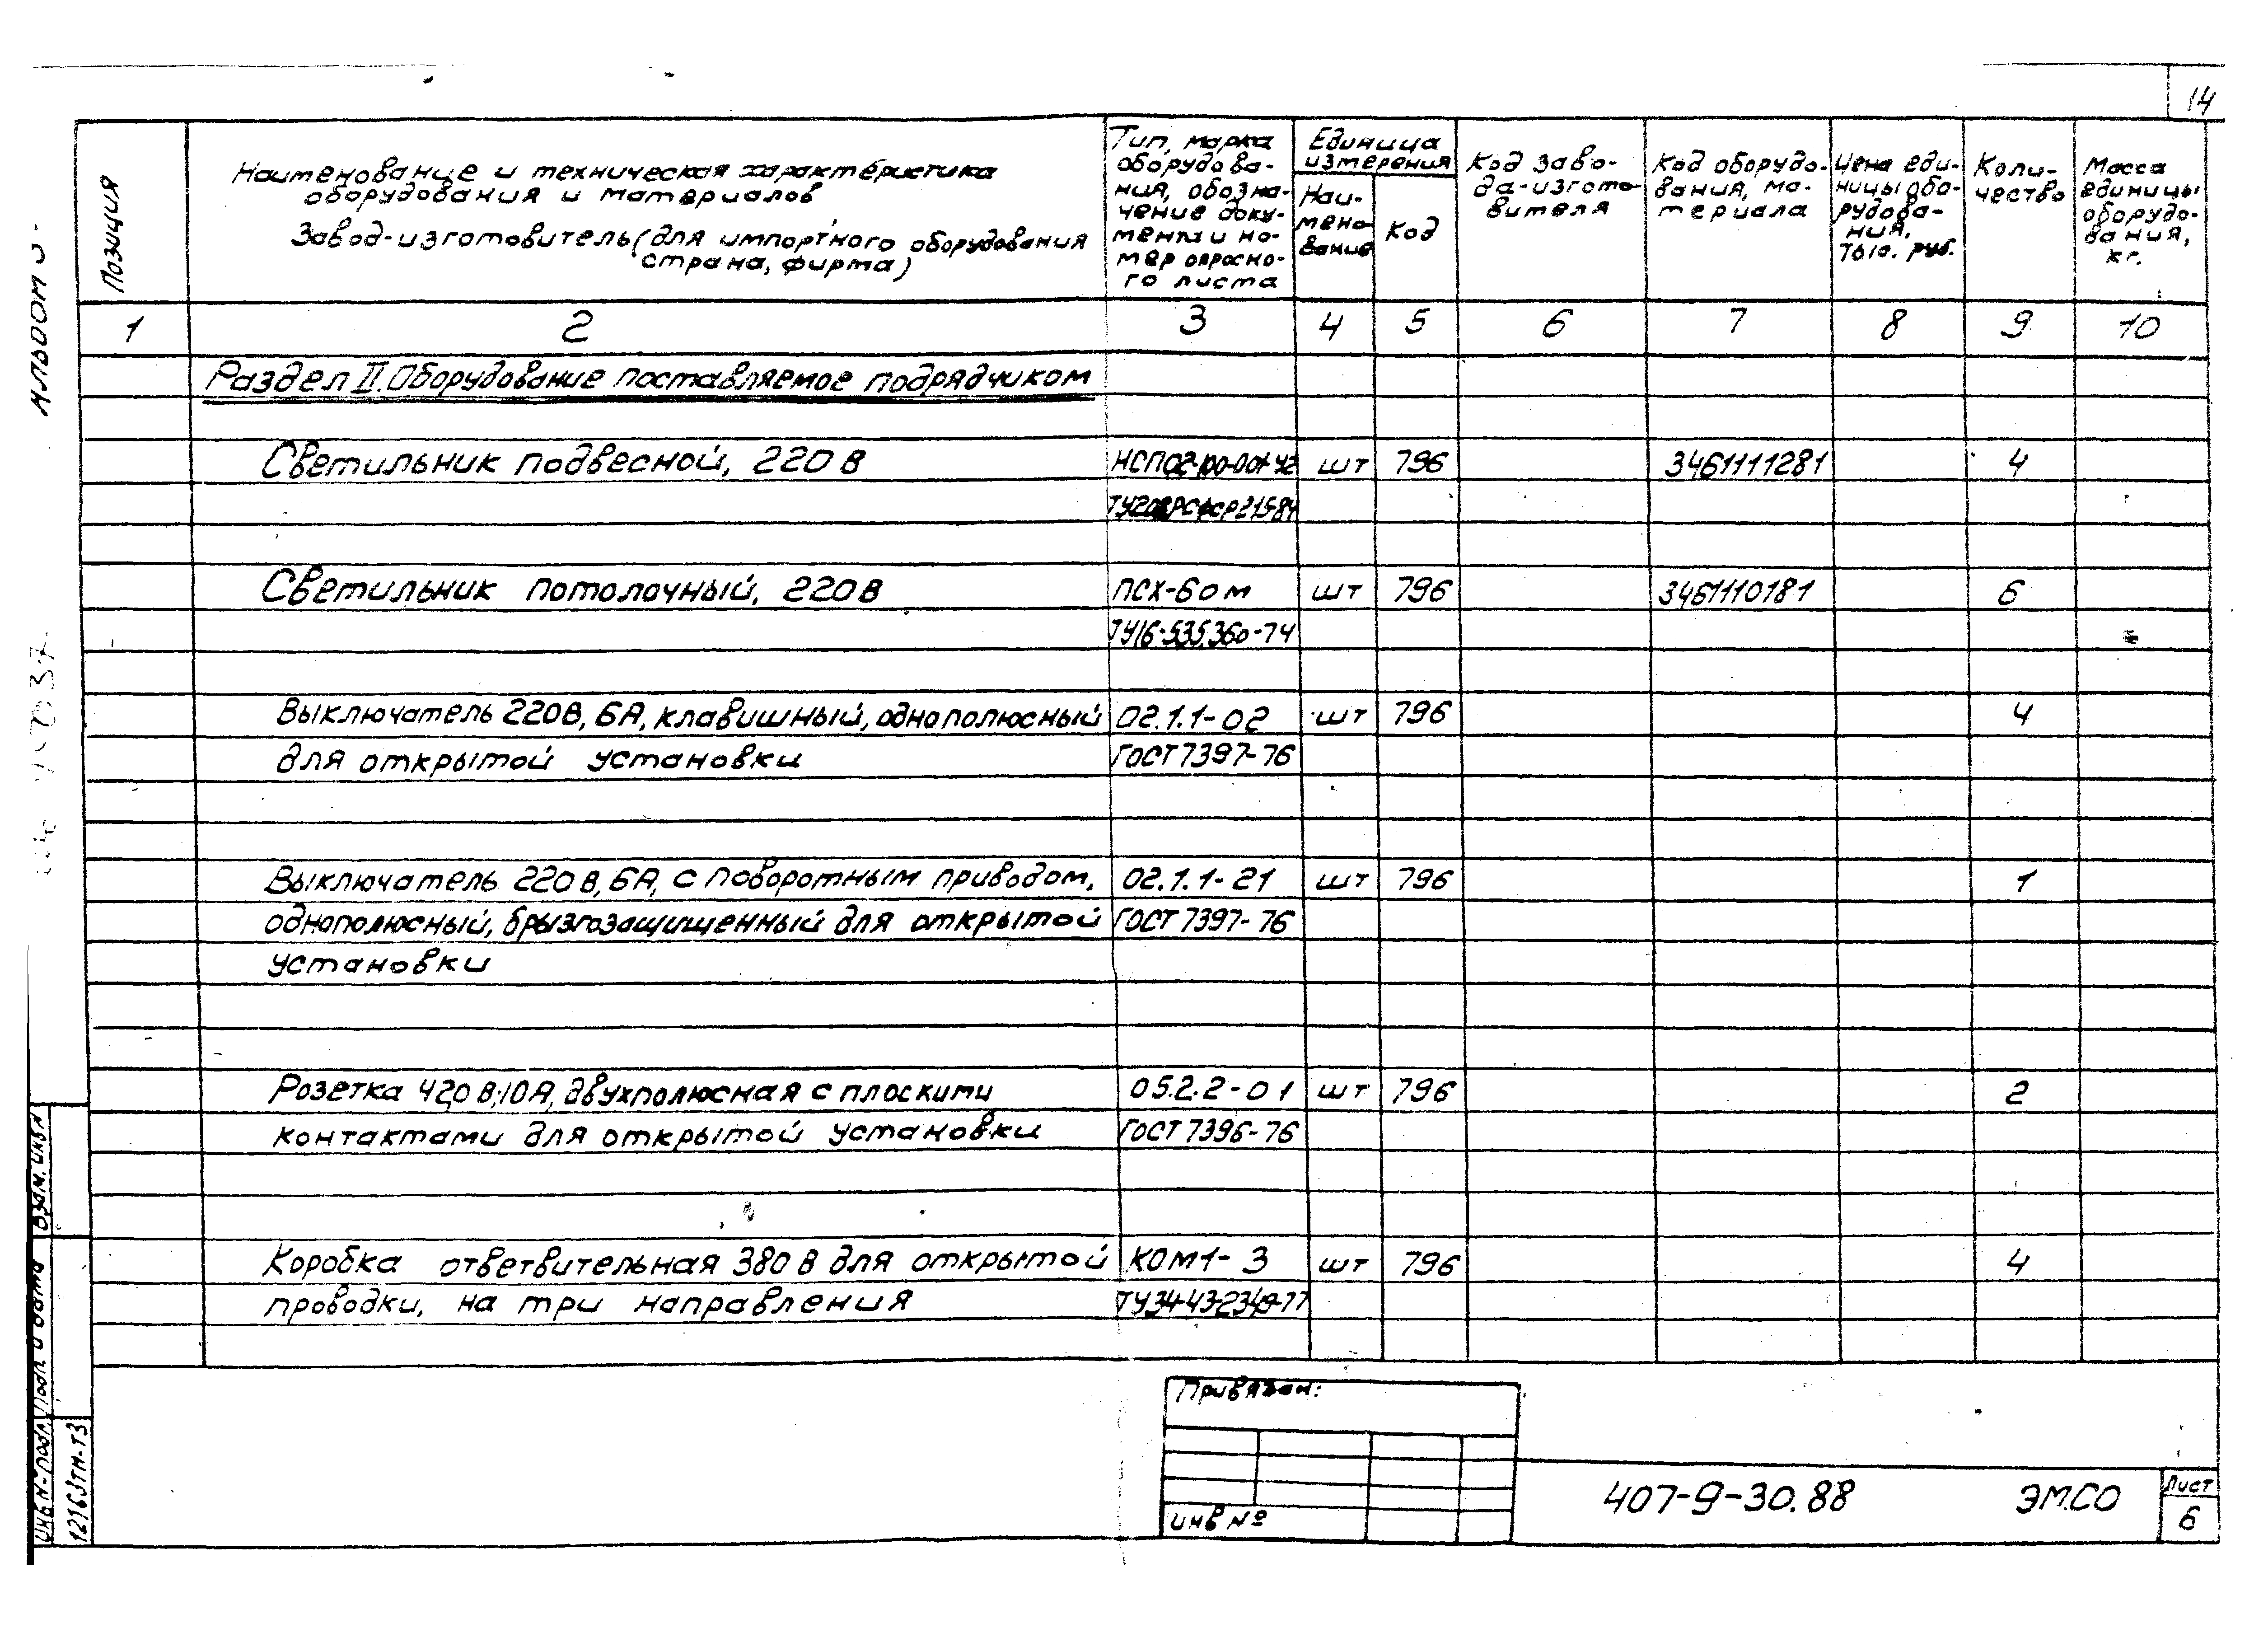 14
Позиция
Наименование и техническая характеристика
оборудования и материалов
Завод-изготовитель (для импортного оборудования
страна, фирма)
Тип, марка
оборудова-
ния, обозна-
чение доку-
мента и но-
мер опросно-
го листа
Единица
измерения
Наи-
мено-
вание
Код
Код заво-
да-изгото-
вителя
Код оборудо-
вания, ма-
териала
Цена еди-
ницы обо-
рудова-
ния,
тыс. руб.
Коли-
чество
Масса
единицы
оборудо-
вания,
кг.
1 2 3 4 5 6 7 8 9 10
Раздел II. Оборудование поставляемое подрядчиком
Светильник подвесной, 220 В НСП02-100-001-У2 шт 796 3461111281 4
Светильник потолочный, 220 В ПСХ-60м шт 796 3461110181 6
ТУ16-535.360-74
Выключатель 220В, 6А, клавишный, однополюсный 02.1.1-02 шт 796 4
для открытой установки ГОСТ 7397-76
Выключатель 220 В, 6А, с поворотным приводом, 02.1.1-21 шт 796 1
однополюсный, брызгозащищенный для открытой ГОСТ 7397-76
установки
Розетка 42,0 В, 10А, двухполюсная с плоскими 05.2.2-01 шт 796 2
контактами для открытой установки ГОСТ 7396-76
Коробка ответвительная 380 В для открытой КОМ1-3 шт 796 4
проводки, на три направления ТУ34-43-2349-77
Привязан:
инв №
407-9-30.88 ЭМ.СО
Лист
6
Альбом
Взам. инв №
Подп. и дата
Инв № подл.
12163тм-т3